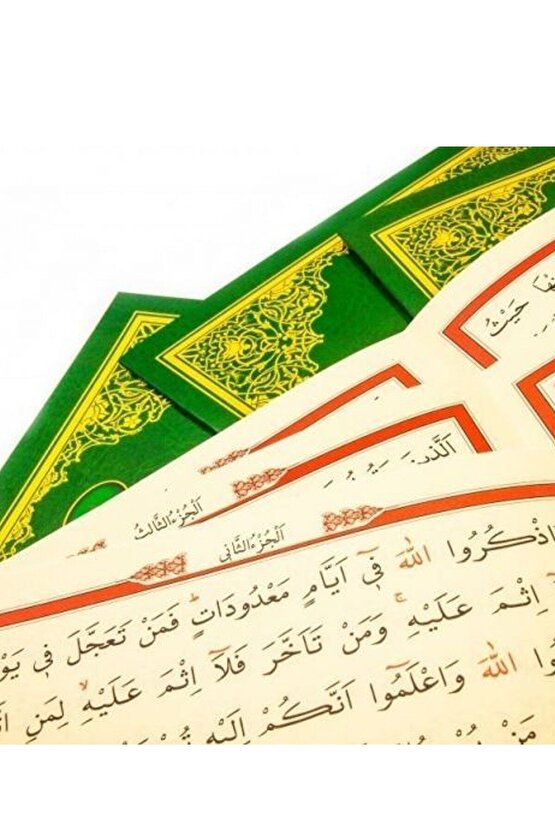 حَيْثُ
اَلْجُزْءُ الثَّالِثُ
اَلْجُزْءُ الثَّانِى
اذْكُرُوا اللّٰهَ فٖٓى اَيَّامٍ مَعْدُودَاتٍؕ فَمَنْ تَعَجَّلَ فٖى
اِثْمَ عَلَيْهِۚ وَمَنْ تَاَخَّرَ فَلَٓا اِثْمَ عَلَيْهِۙ لِمَنِ
اللّٰهَ وَاعْلَمُٓوا اَنَّكُمْ اِلَيْهِ